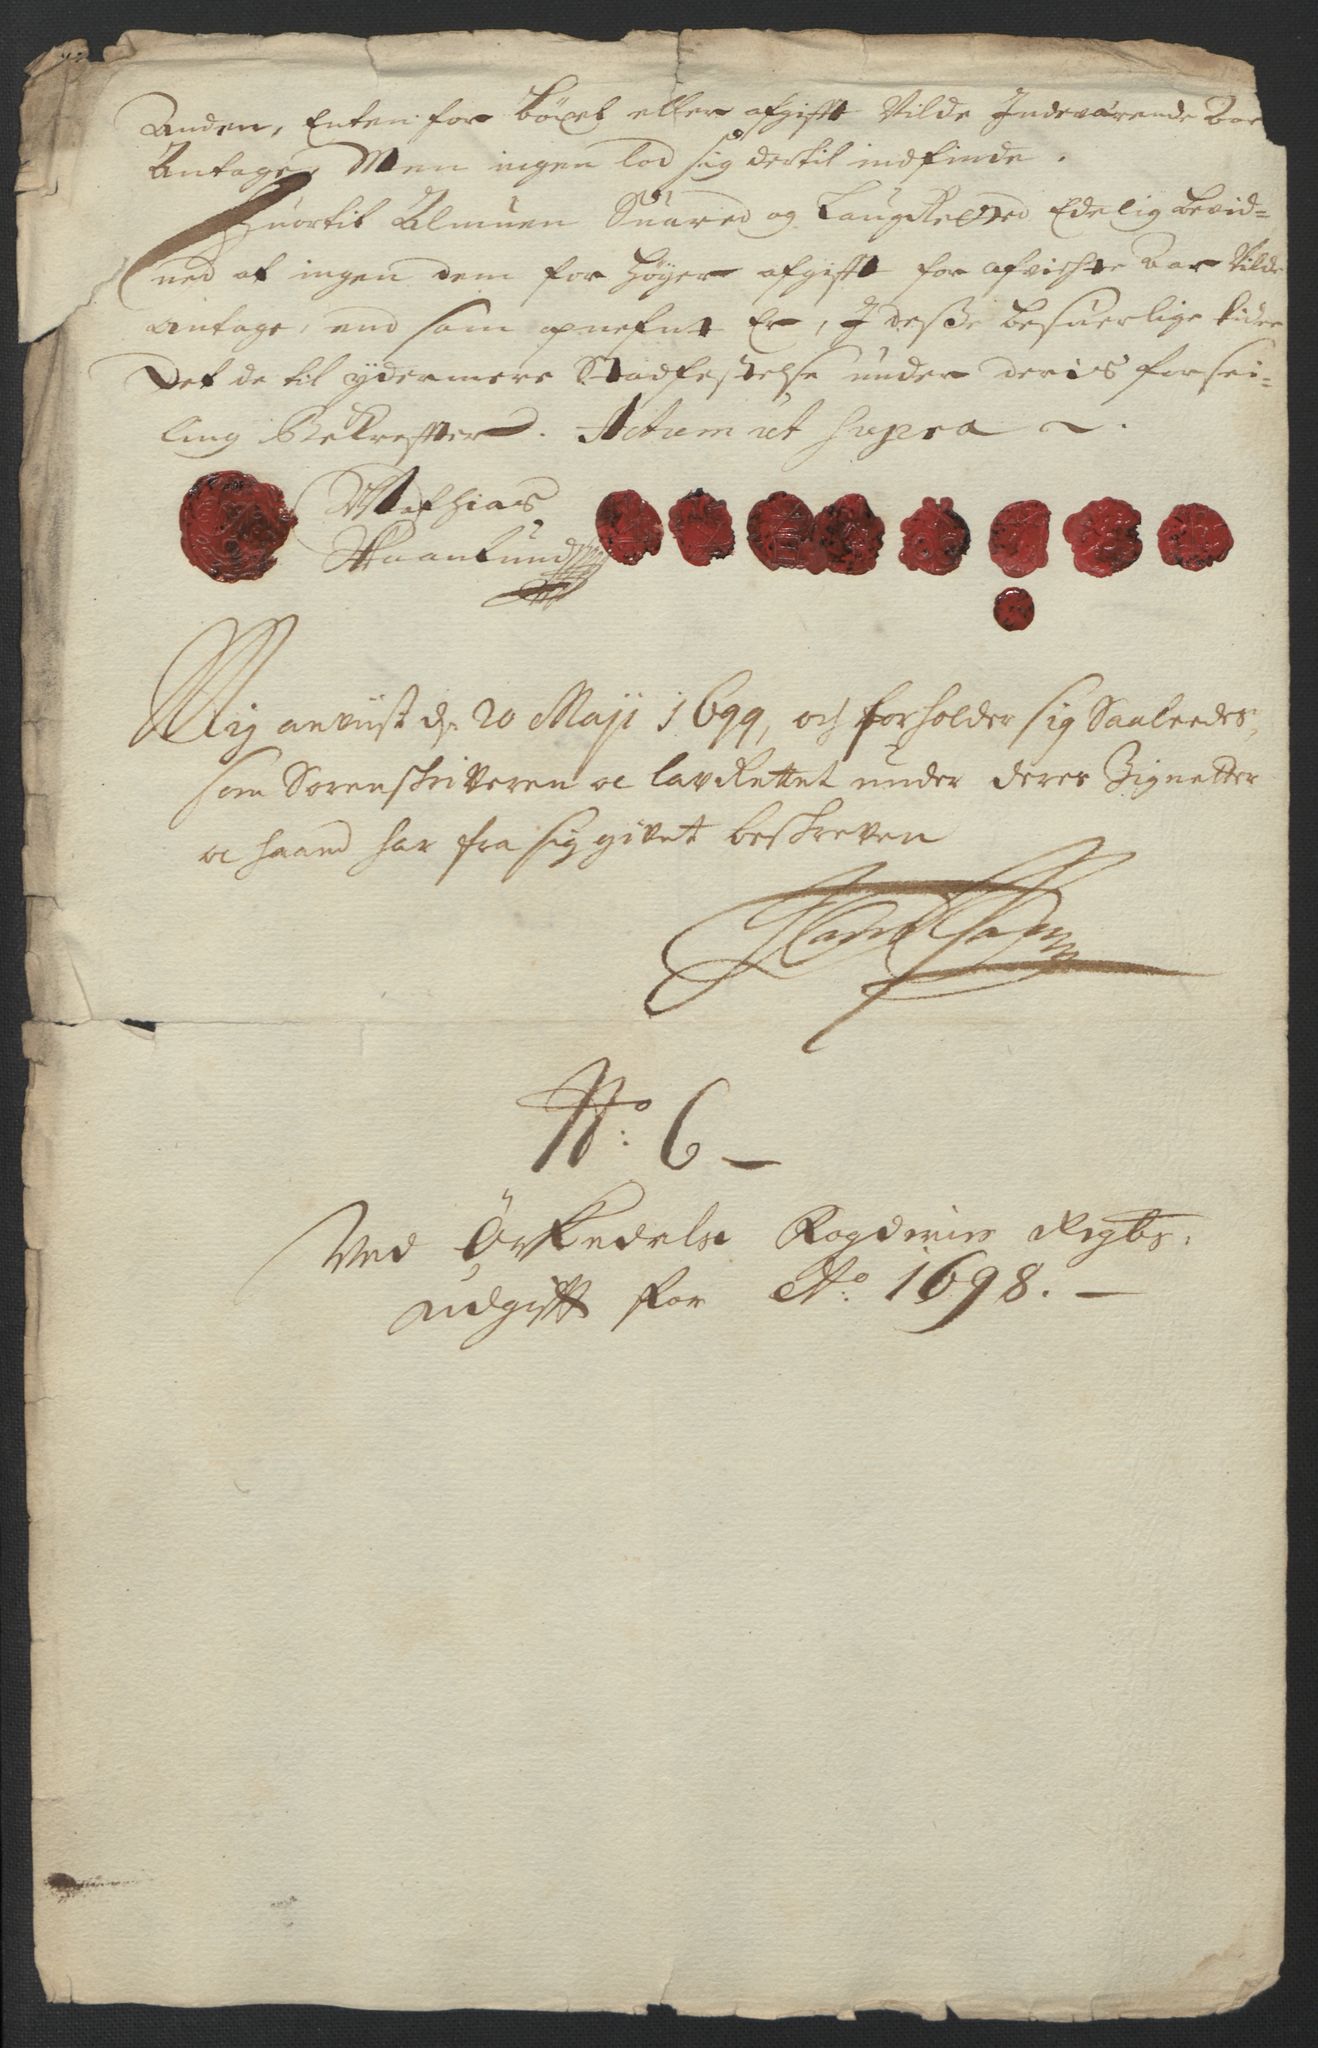 Anden, Enten for bøxel eller afgifft Vilde Indeværende Aar
Antage, Men ingen lod sig dertil indfinde.
Huortil Almuen Suared og Laugretted Edelig bevid=
ned at ingen dem for høyer afgifft for afvichte Aar Vilde
antage, end som opnefnt Er, J desse besuerlige tider
Det de til ydermere Stadfestelse under deris forsei=
ling Bekreffter. Actum ut supra
Mathias
Skaanlund
Mig anviist d. 20 Maji 1699, och forholder sig Saaledes,
som Sorenskriveren oc lavRettet under deres Zignetter
oc haand har fra sig givet beskreven
No. 6
Ved Örkedals Fogderies Regbs.
udgifft for Ao. 1698.